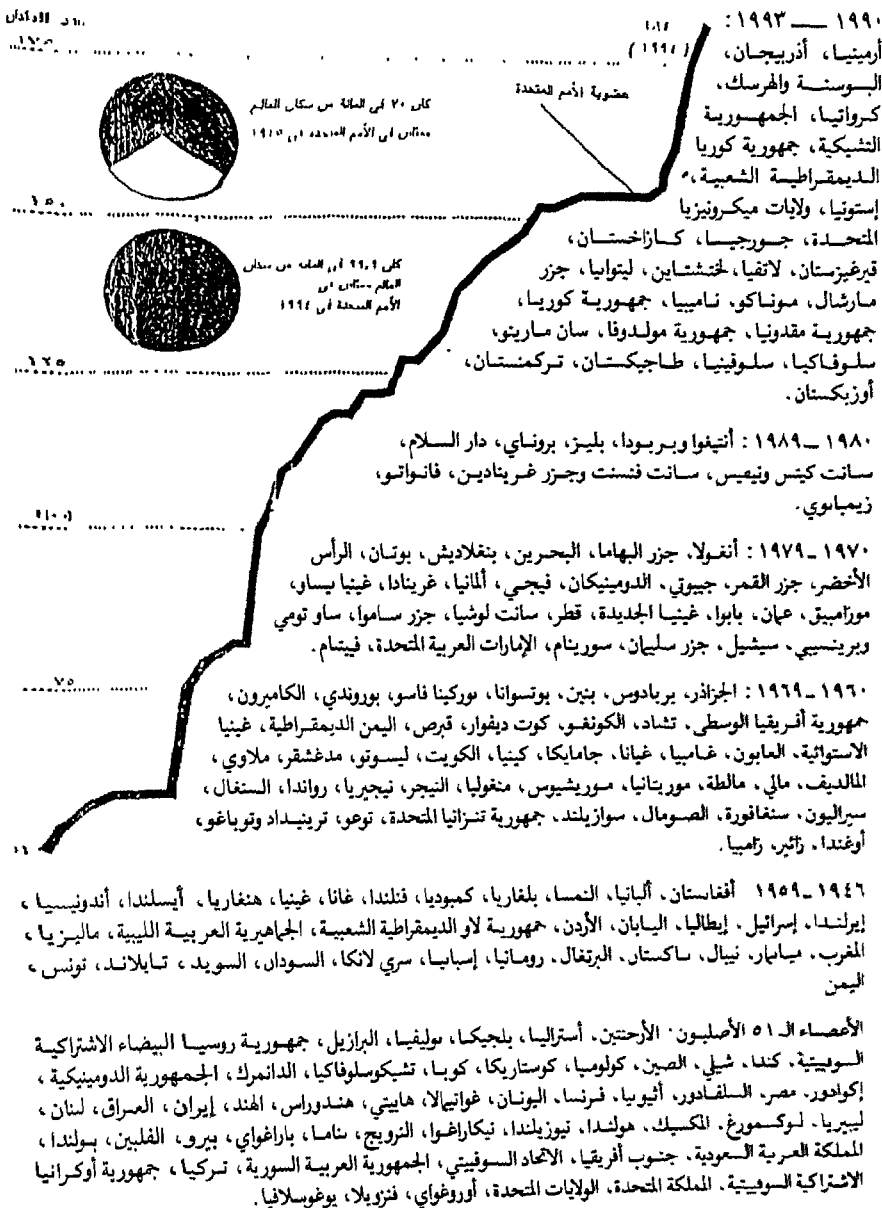 ١٩٩٠ ـــ ١٩٩٣ :
أرمينيا، أذربيجان،
البوسنة والهرسك،
كرواتيا، الجمهورية
التشيكية، جمهورية كوريا
الديمقراطية الشعبية،
إستونيا، ولايات ميكرونيزيا
المتحدة، جورجيا، كازاخستان،
قيرغيزستان، لاتفيا، لختنشتاين، ليتوانيا، جزر
مارشال، موناكو، ناميبيا، جمهورية كوريا،
جمهورية مقدونيا، جمهورية مولدوفا، سان مارينو،
سلوفاكيا، سلوفينيا، طاجيكستان، تركمنستان،
أوزبكستان.
(١٩٩٤)
عضوية الأمم المتحدة
كان ٧٠ في المائة من سكان العالم
ممثلين في الأمم المتحدة في ١٩٤٥
كان ٩٩,٩ في المائة من سكان
العالم ممثلين في
الأمم المتحدة في ١٩٩٤
١٧٥
١٥٠
١٢٥
١٠٠
٧٥
١٩٨٠ ـ ١٩٨٩ : أنتيغوا وبربودا، بليز، بروناي، دار السلام،
سانت كيتس ونيفيس، سانت فنسنت وجزر غرينادين، فانواتو،
زيمبابوي.
١٩٧٠ ـ ١٩٧٩ : أنغولا، جزر البهاما، البحرين، بنغلاديش، بوتان، الرأس
الأخضر، جزر القمر، جيبوتي، الدومينيكان، فيجي، ألمانيا، غرينادا، غينيا بيساو،
موزامبيق، عمان، بابوا، غينيا الجديدة، قطر، سانت لوشيا، جزر ساموا، ساو تومي
وبرينسيبي، سيشيل، جزر سليمان، سورينام، الإمارات العربية المتحدة، فييتنام.
١٩٦٠ ـ ١٩٦٩ : الجزائر، بربادوس، بنين، بوتسوانا، بوركينا فاسو، بوروندي، الكاميرون،
جمهورية أفريقيا الوسطى، تشاد، الكونغو، كوت ديفوار، قبرص، اليمن الديمقراطية، غينيا
الاستوائية، الغابون، غامبيا، غيانا، جامايكا، كينيا، الكويت، ليسوتو، مدغشقر، ملاوي،
المالديف، مالي، مالطة، موريتانيا، موريشيوس، منغوليا، النيجر، نيجيريا، رواندا، السنغال،
سيراليون، سنغافورة، الصومال، سوازيلند، جمهورية تنزانيا المتحدة، توغو، ترينيداد وتوباغو،
أوغندا، زائير، زامبيا.
١٩٤٦ ـ ١٩٥٩ أفغانستان، ألبانيا، النمسا، بلغاريا، كمبوديا، فنلندا، غانا، غينيا، هنغاريا، أيسلندا، أندونيسيا،
إيرلندا، إسرائيل، إيطاليا، اليابان، الأردن، جمهورية لاو الديمقراطية الشعبية، الجماهيرية العربية الليبية، ماليزيا،
المغرب، ميانمار، نيبال، باكستان، البرتغال، رومانيا، إسبانيا، سري لانكا، السودان، السويد، تايلاند، تونس،
اليمن
الأعضاء الـ ٥١ الأصليون: الأرجنتين، أستراليا، بلجيكا، بوليفيا، البرازيل، جمهورية روسيا البيضاء الاشتراكية
السوفيتية، كندا، شيلي، الصين، كولومبيا، كوستاريكا، كوبا، تشيكوسلوفاكيا، الدانمرك، الجمهورية الدومينيكية،
إكوادور، مصر، السلفادور، أثيوبيا، فرنسا، اليونان، غواتيمالا، هاييتي، هندوراس، الهند، إيران، العراق، لبنان،
ليبيريا، لوكسمورغ، المكسيك، هولندا، نيوزيلندا، نيكاراغوا، النرويج، بناما، باراغواي، بيرو، الفلبين، بولندا،
المملكة العربية السعودية، جنوب أفريقيا، الاتحاد السوفييتي، الجمهورية العربية السورية، تركيا، جمهورية أوكرانيا
الاشتراكية السوفييتية، المملكة المتحدة، الولايات المتحدة، أوروغواي، فنزويلا، يوغوسلافيا.